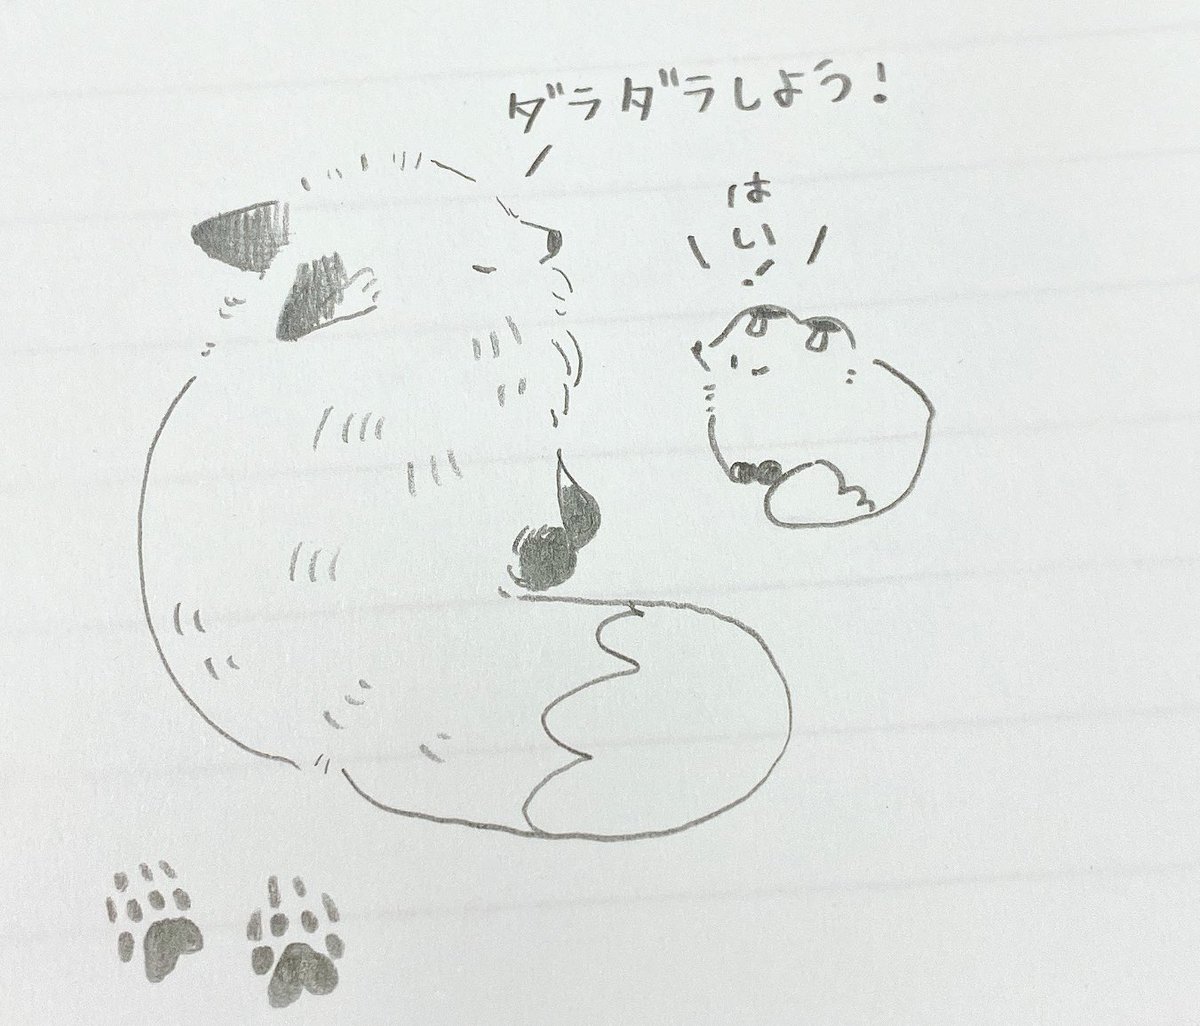 ダラダラしよう!
はい